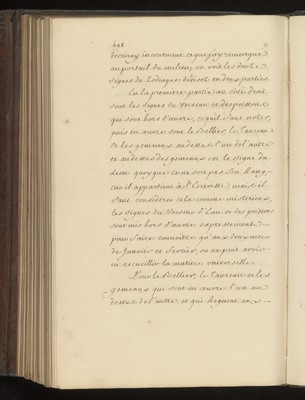 498
décriray incontinent ce que j'ay remarqué
au portail du milieu, on voit les douze
signes du Zodiaque divisez en deux parties.
En la premiere partie au costé droit
sont les signes du verseau et des poissons
qui sont hors d'œuvre, ce qu'il faut noter,
puis en œuvre sont le Bellier, le Taureau
et les gemeaux au dessus l'un de l'autre
et au dessus des gemeaux est le signe du
Lion quoy que ce ne soit pas son Rang,
car il appartient à l'Ecrevisse, mais il
faut considerer cela comme misterieux,
les signes du Verseur d'Eau et des poissons
sont mis hors d'œuvre expressement
pour faire connoitre qu'aux deux mois
de Janvier et Fevrier, on ne peut avoir
ni recueillir la matiere universelle.
Pour le Bellier, le Taureau et les
gemeaux qui sont en œuvre l'un au
dessus de l'autre et qui Regnent aux